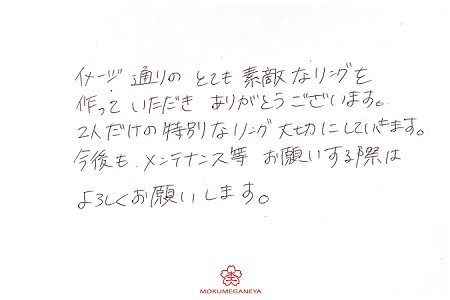 イメージ通りの とても素敵なリングを
作っていただき ありがとうございます。
2人だけの特別なリング大切にしていきます。
今後も、メンテナンス等 お願いする際は
よろしくお願いします。
MOKUMEGANEYA